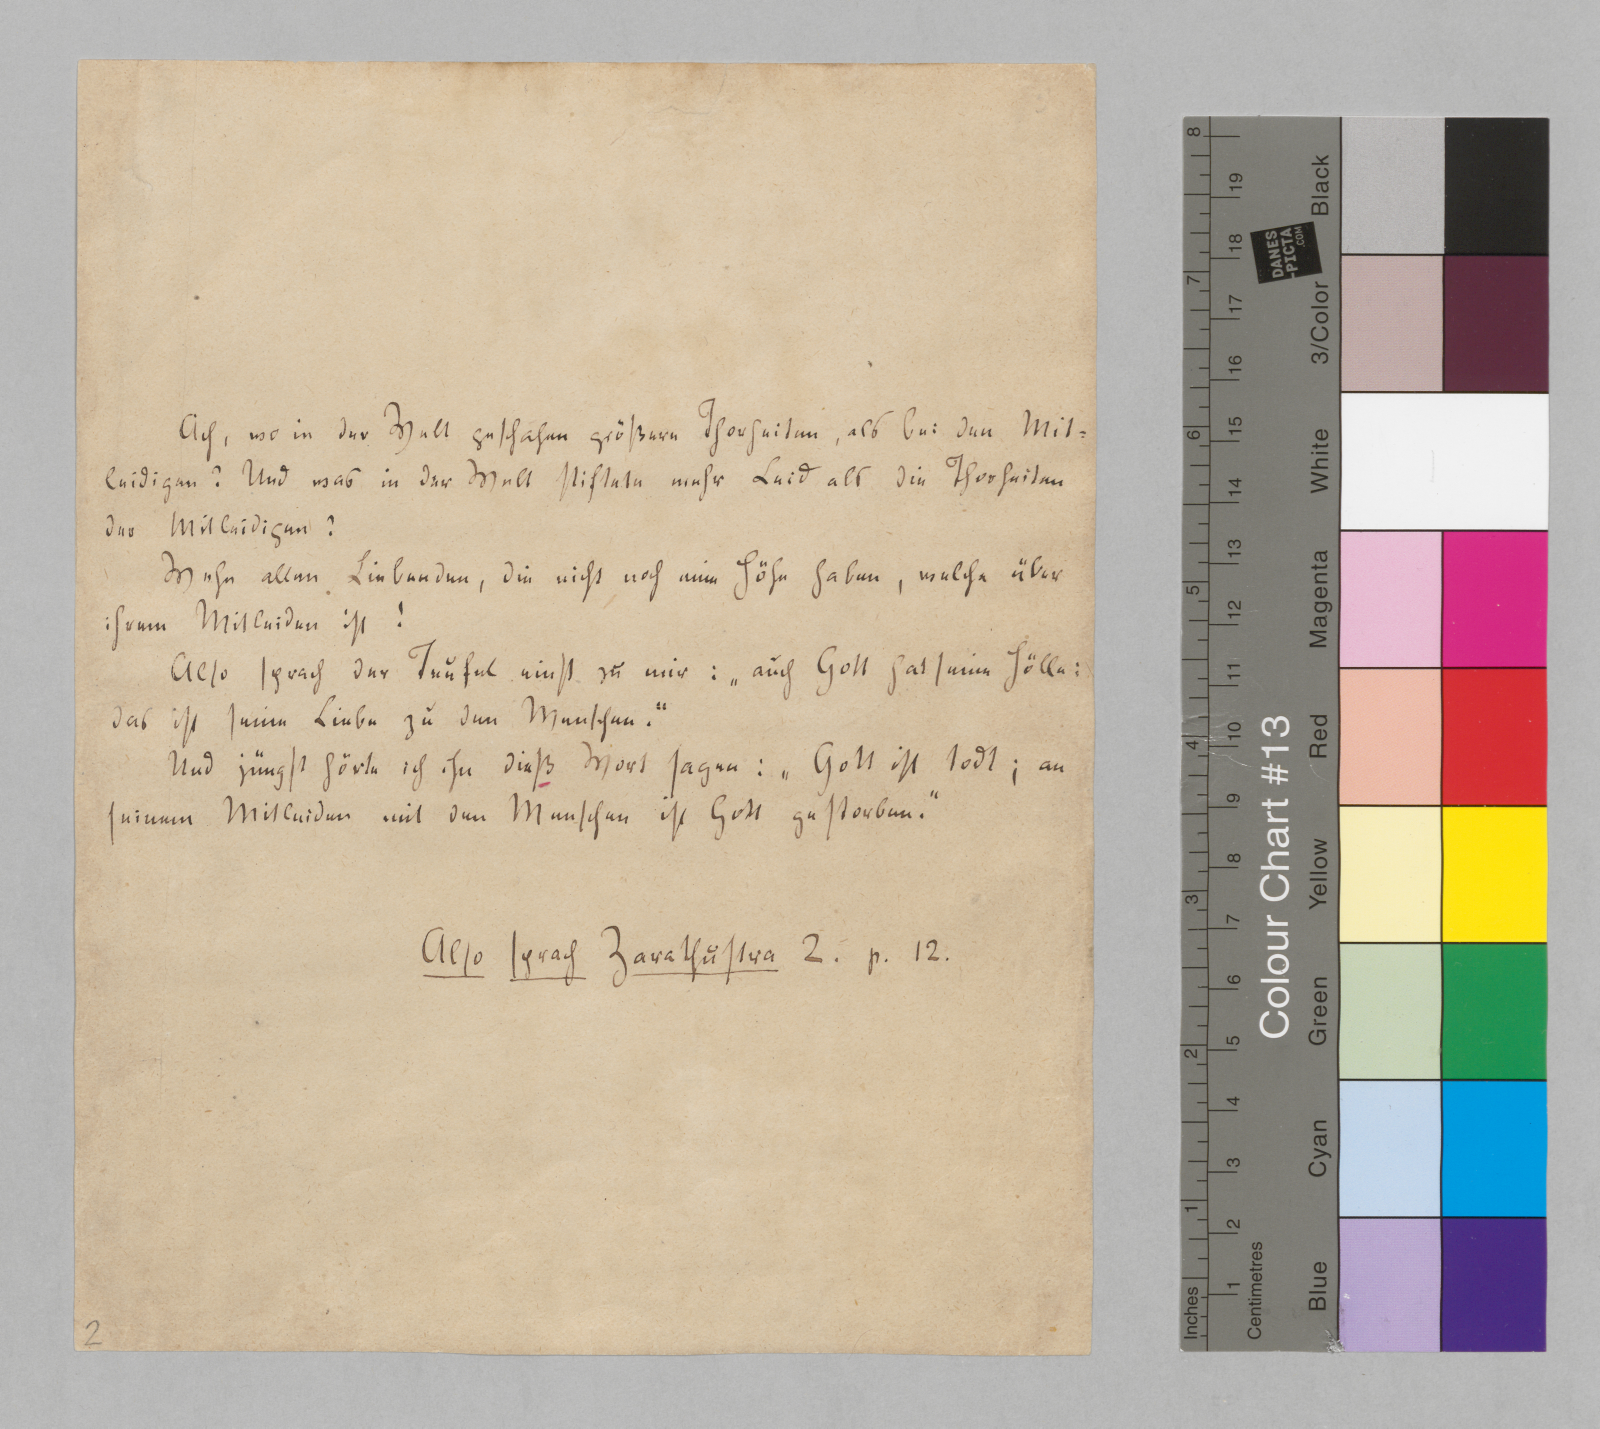 Ach, wo in der Welt geschahen größere Thorheiten, als bei den Mit=
leidigen? Und was in der Welt stiftete mehr Leid als die Thorheiten
der Mitleidigen?
Wehe allen Liebenden, die nicht noch eine Höhe haben, welche über
ihrem Mitleiden ist!
Also sprach der Teufel einst zu mir: „auch Gott hat seine Hölle:
das ist seine Liebe zu den Menschen.“
Und jüngst hörte ich ihn dieß Wort sagen: „Gott ist todt; an
seinem Mitleiden mit den Menschen ist Gott gestorben.“
Also sprach Zarathustra 2. p. 12.
2
Inches
1
2
3
4
5
6
7
8
Centimetres
1
2
3
4
5
6
7
8
9
10
11
12
13
14
15
16
17
18
19
Colour Chart #13
DANES
-PICTA
.COM
Blue
Cyan
Green
Yellow
Red
Magenta
White
3/Color
Black